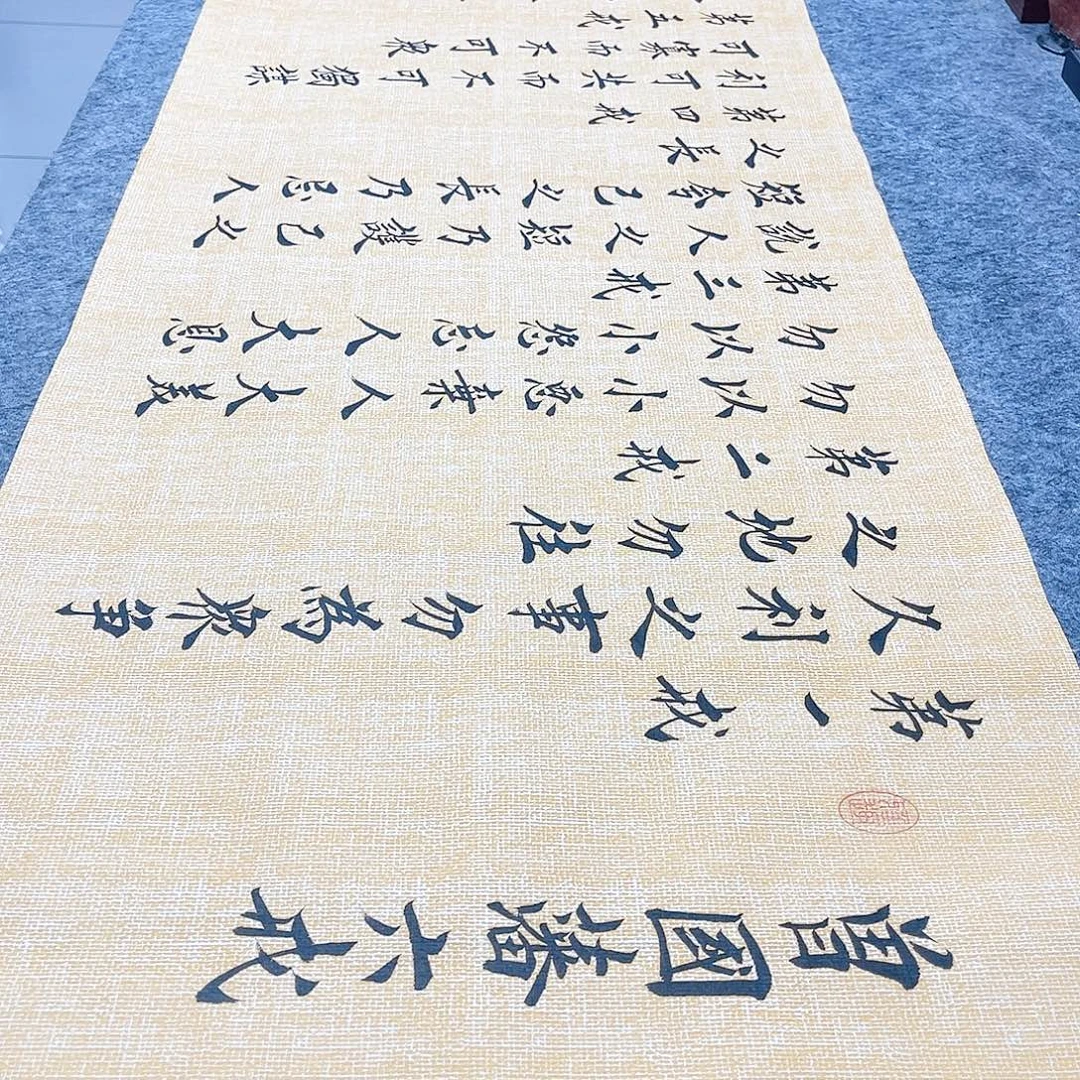 曾國藩六戒
第一戒
久利之事勿為衆爭
之地勿往
第二戒
勿以小惡棄人大美
勿以小怨忘人大恩
第三戒
說人之短乃護己之
短夸己之長乃忌人
之長
第四戒
利可共而不可獨謀
可寡而不可衆
第五戒